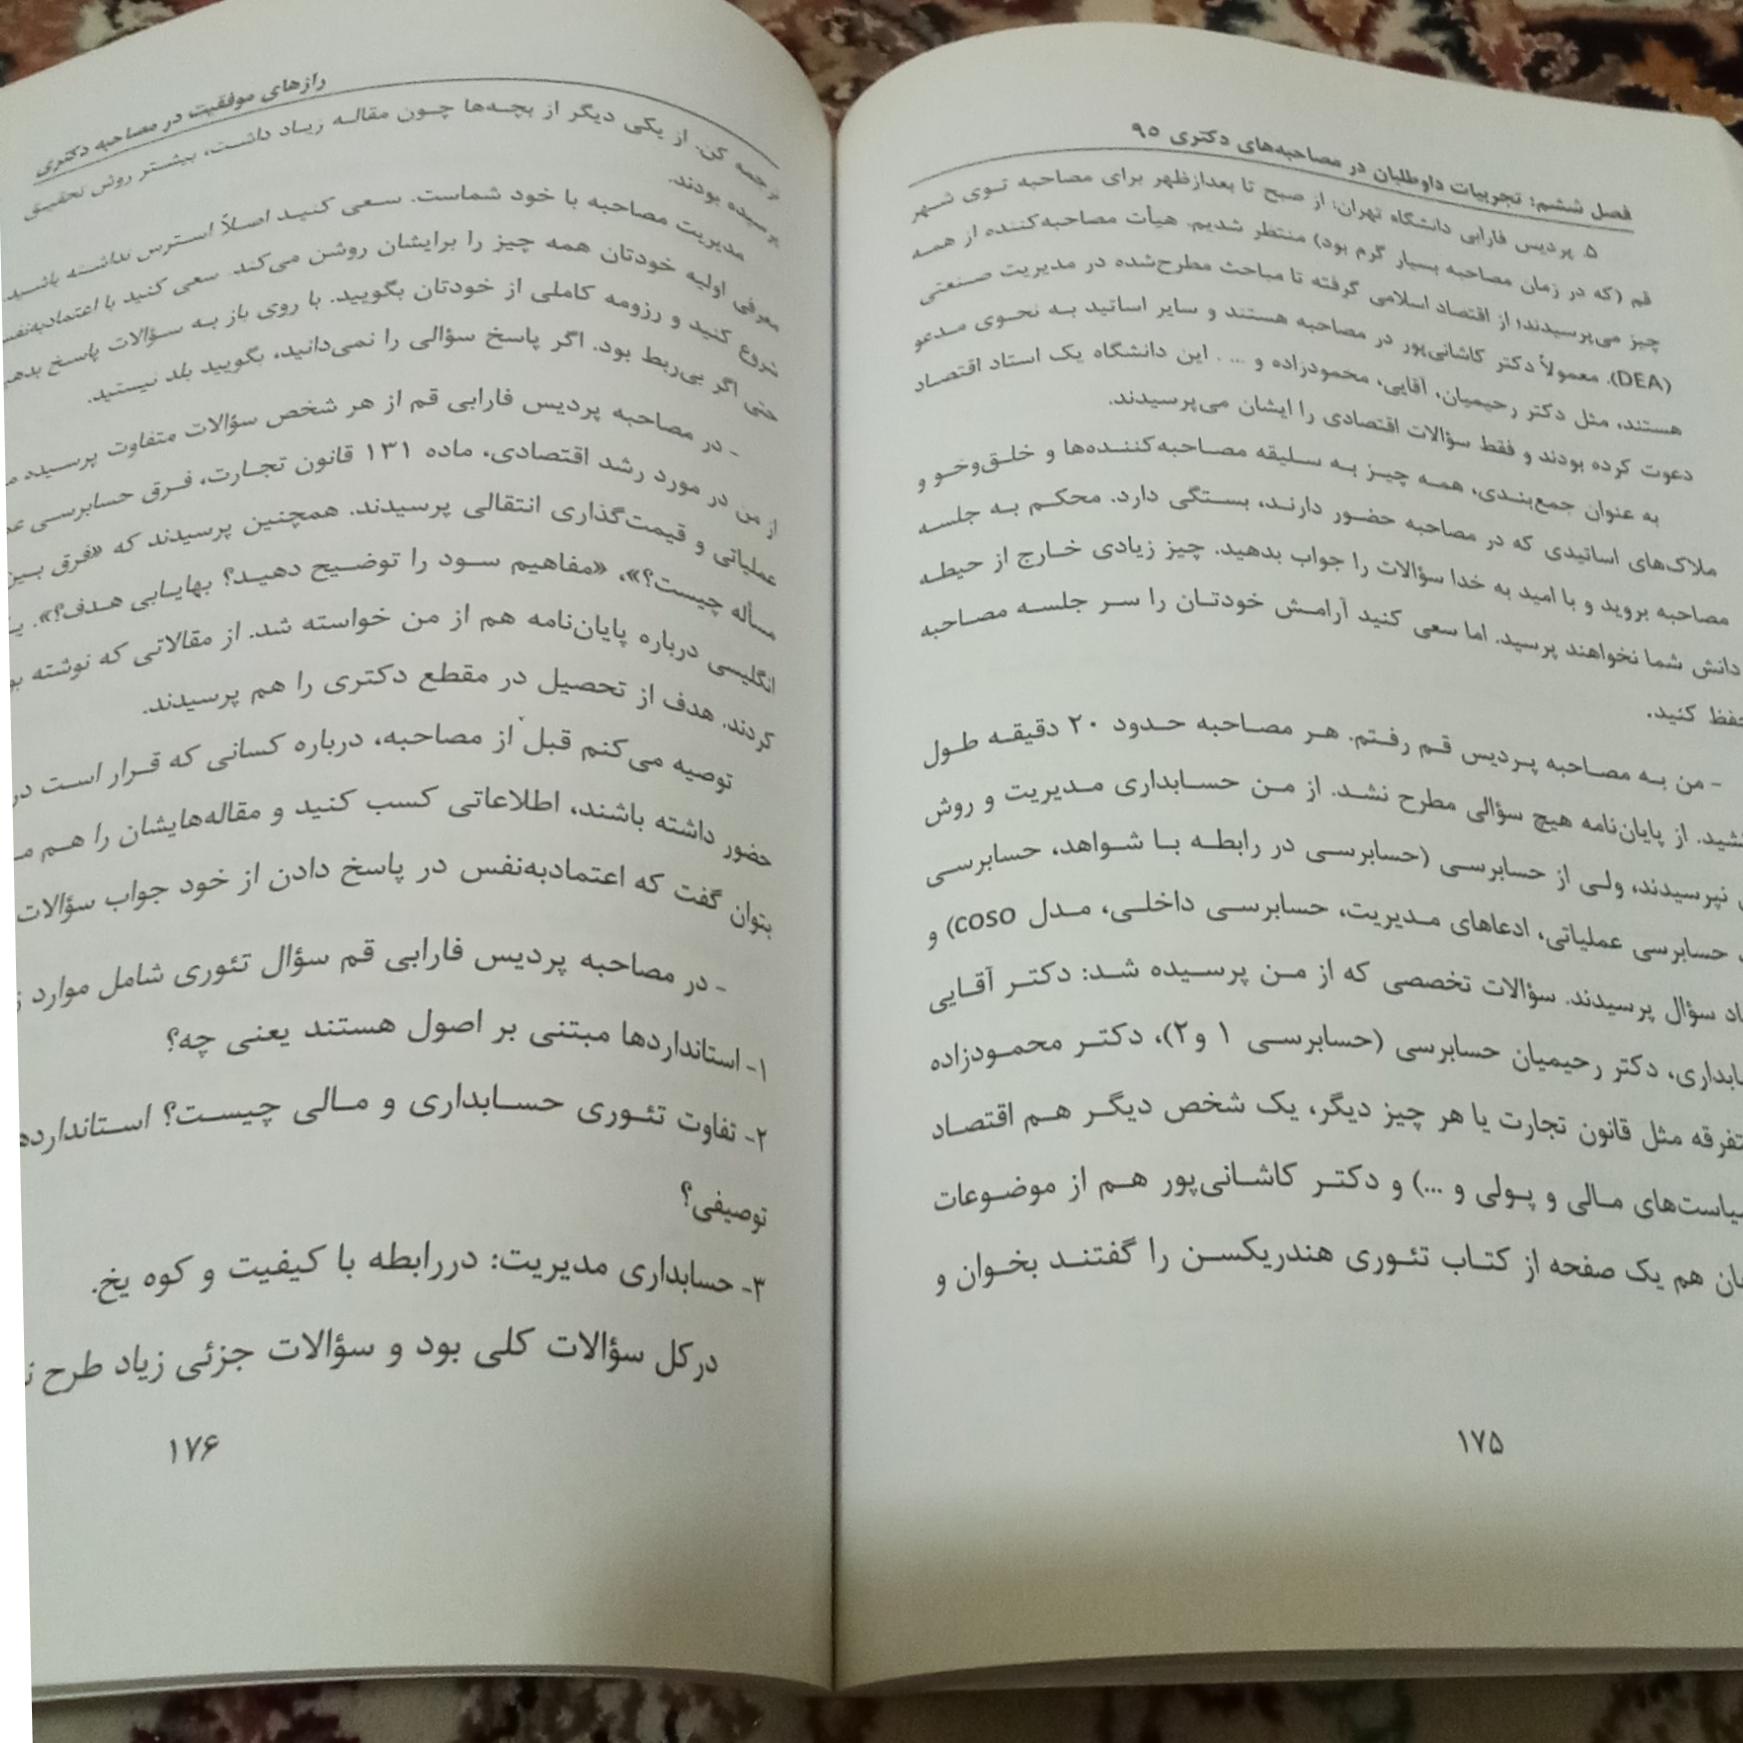 فصل ششم: تجربیات داوطلبان در مصاحبه‌های دکتری ۹۵
۵. پردیس فارابی دانشگاه تهران: از صبح تا بعدازظهر برای مصاحبه توی شهر
قم (که در زمان مصاحبه بسیار گرم بود) منتظر شدیم. هیأت مصاحبه‌کننده از همه
چیز می‌پرسیدند؛ از اقتصاد اسلامی گرفته تا مباحث مطرح‌شده در مدیریت صنعتی
(DEA). معمولاً دکتر کاشانی‌پور در مصاحبه هستند و سایر اساتید به نحوی مدعو
هستند، مثل دکتر رحیمیان، آقایی، محمودزاده و ... . این دانشگاه یک استاد اقتصاد
دعوت کرده بودند و فقط سؤالات اقتصادی را ایشان می‌پرسیدند.
به عنوان جمع‌بندی، همه چیز به سلیقه مصاحبه‌کننده‌ها و خلق‌وخو و
ملاک‌های اساتیدی که در مصاحبه حضور دارند، بستگی دارد. محکم به جلسه
مصاحبه بروید و با امید به خدا سؤالات را جواب بدهید. چیز زیادی خارج از حیطه
دانش شما نخواهند پرسید. اما سعی کنید آرامش خودتان را سر جلسه مصاحبه
حفظ کنید.
- من به مصاحبه پردیس قم رفتم. هر مصاحبه حدود ۲۰ دقیقه طول
کشید. از پایان‌نامه هیچ سؤالی مطرح نشد. از من حسابداری مدیریت و روش
نپرسیدند، ولی از حسابرسی (حسابرسی در رابطه با شواهد، حسابرسی
حسابرسی عملیاتی، ادعاهای مدیریت، حسابرسی داخلی، مدل coso) و
سؤال پرسیدند. سؤالات تخصصی که از من پرسیده شد: دکتر آقایی
دکتر رحیمیان حسابرسی (حسابرسی ۱ و۲)، دکتر محمودزاده
متفرقه مثل قانون تجارت یا هر چیز دیگر، یک شخص دیگر هم اقتصاد
سیاست‌های مالی و پولی و ...) و دکتر کاشانی‌پور هم از موضوعات
هم یک صفحه از کتاب تئوری هندریکسن را گفتند بخوان و
۱۷۵
رازهای موفقیت در مصاحبه دکتری
ترجمه کن. از یکی دیگر از بچه‌ها چون مقاله زیاد داشت، بیشتر روش تحقیق
پرسیده بودند.
مدیریت مصاحبه با خود شماست. سعی کنید اصلاً استرس نداشته باشید.
معرفی اولیه خودتان همه چیز را برایشان روشن می‌کند. سعی کنید با اعتمادبه‌نفس
شروع کنید و رزومه کاملی از خودتان بگویید. با روی باز به سؤالات پاسخ
حتی اگر بی‌ربط بود. اگر پاسخ سؤالی را نمی‌دانید، بگویید بلد نیستید.
- در مصاحبه پردیس فارابی قم از هر شخص سؤالات متفاوت پرسیده
از من در مورد رشد اقتصادی، ماده ۱۳۱ قانون تجارت، فرق حسابرسی
عملیاتی و قیمت‌گذاری انتقالی پرسیدند. همچنین پرسیدند که «فرق بین
مسأله چیست؟»، «مفاهیم سود را توضیح دهید؟ بهایابی هدف؟».
انگلیسی درباره پایان‌نامه هم از من خواسته شد. از مقالاتی که نوشته
کردند. هدف از تحصیل در مقطع دکتری را هم پرسیدند.
توصیه می‌کنم قبل از مصاحبه، درباره کسانی که قرار است در
حضور داشته باشند، اطلاعاتی کسب کنید و مقاله‌هایشان را هم
بتوان گفت که اعتمادبه‌نفس در پاسخ دادن از خود جواب سؤالات
- در مصاحبه پردیس فارابی قم سؤال تئوری شامل موارد
۱- استانداردها مبتنی بر اصول هستند یعنی چه؟
۲- تفاوت تئوری حسابداری و مالی چیست؟
توصیفی؟
۳- حسابداری مدیریت: دررابطه با کیفیت و کوه یخ.
درکل سؤالات کلی بود و سؤالات جزئی زیاد طرح
۱۷۶